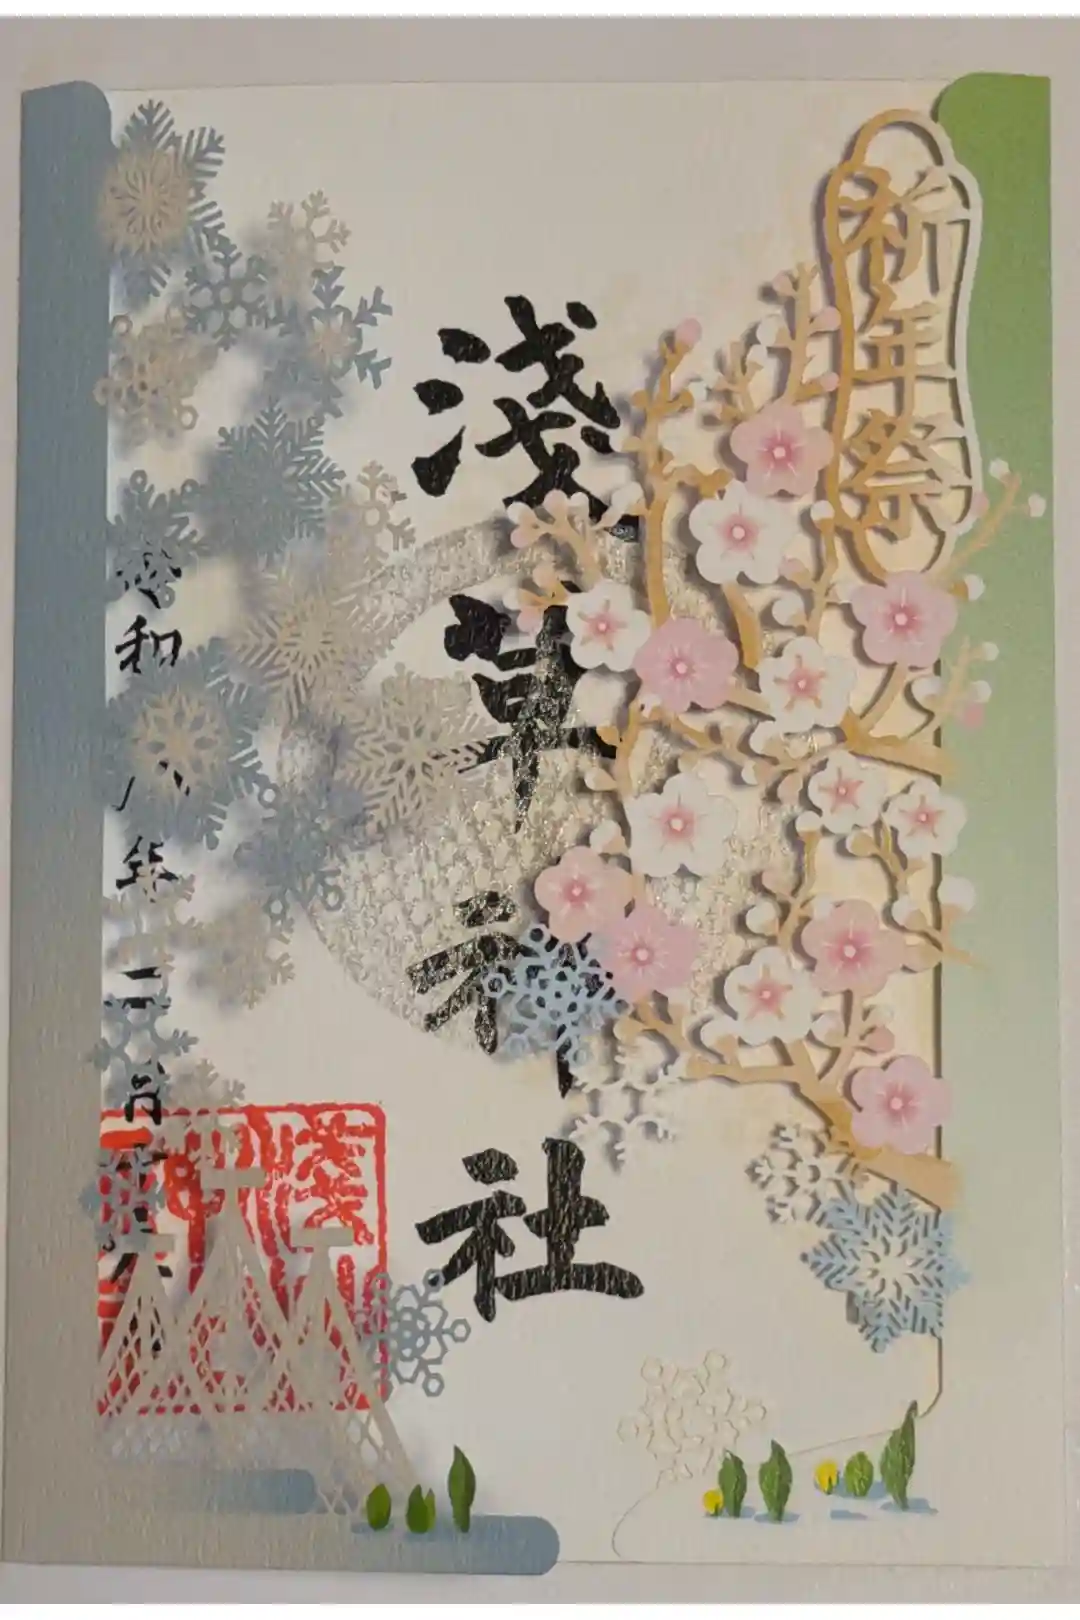 祈年祭
浅草神社
令和八年二月